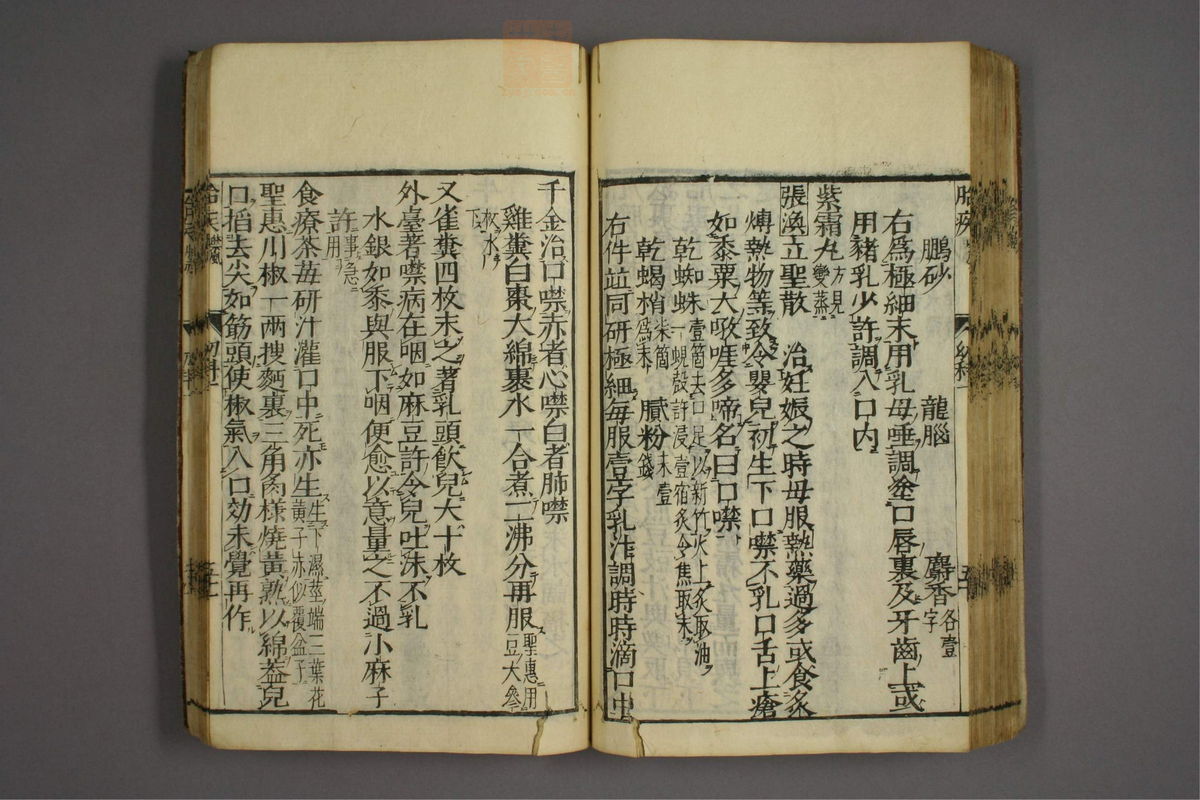 鵬砂 龍腦 麝香各壹字
右爲極細末用乳母唾調塗口唇裏及牙齒上或
用豬乳少許調入口内
紫霜丸方見變蒸
張渙立聖散 治妊娠之時母服熱藥過多或食炙
煿熱物等致令嬰兒初生下口噤不乳口舌上瘡
如黍粟大㰸啀多啼名曰口噤
乾蜘蛛壹箇去口足以新竹火上炙取油一蜆殻許浸壹宿炙令焦取末
乾蝎梢柒箇爲末 膩粉末壹錢
右件並同研極細每服壹字乳汁調時時滴口中
千金治口噤赤者心噤白者肺噤
雞糞白棗大綿裹水一合煮二沸分再服聖惠用豆大參枚水下
又雀糞四枚末之著乳頭飲兒大十枚
外臺著噤病在咽如麻豆許令兒吐沫不乳
水銀如黍與服下咽便愈以意量之不過小麻子
許事急用
食療茶苺研汁灌口中死亦生生下濕莖端二葉花黄子赤似覆盆子
聖惠川椒一兩搜麪裹三角肉樣燒黄熟以綿蓋兒
口掐去尖如筋頭使椒氣入口効未覺再作